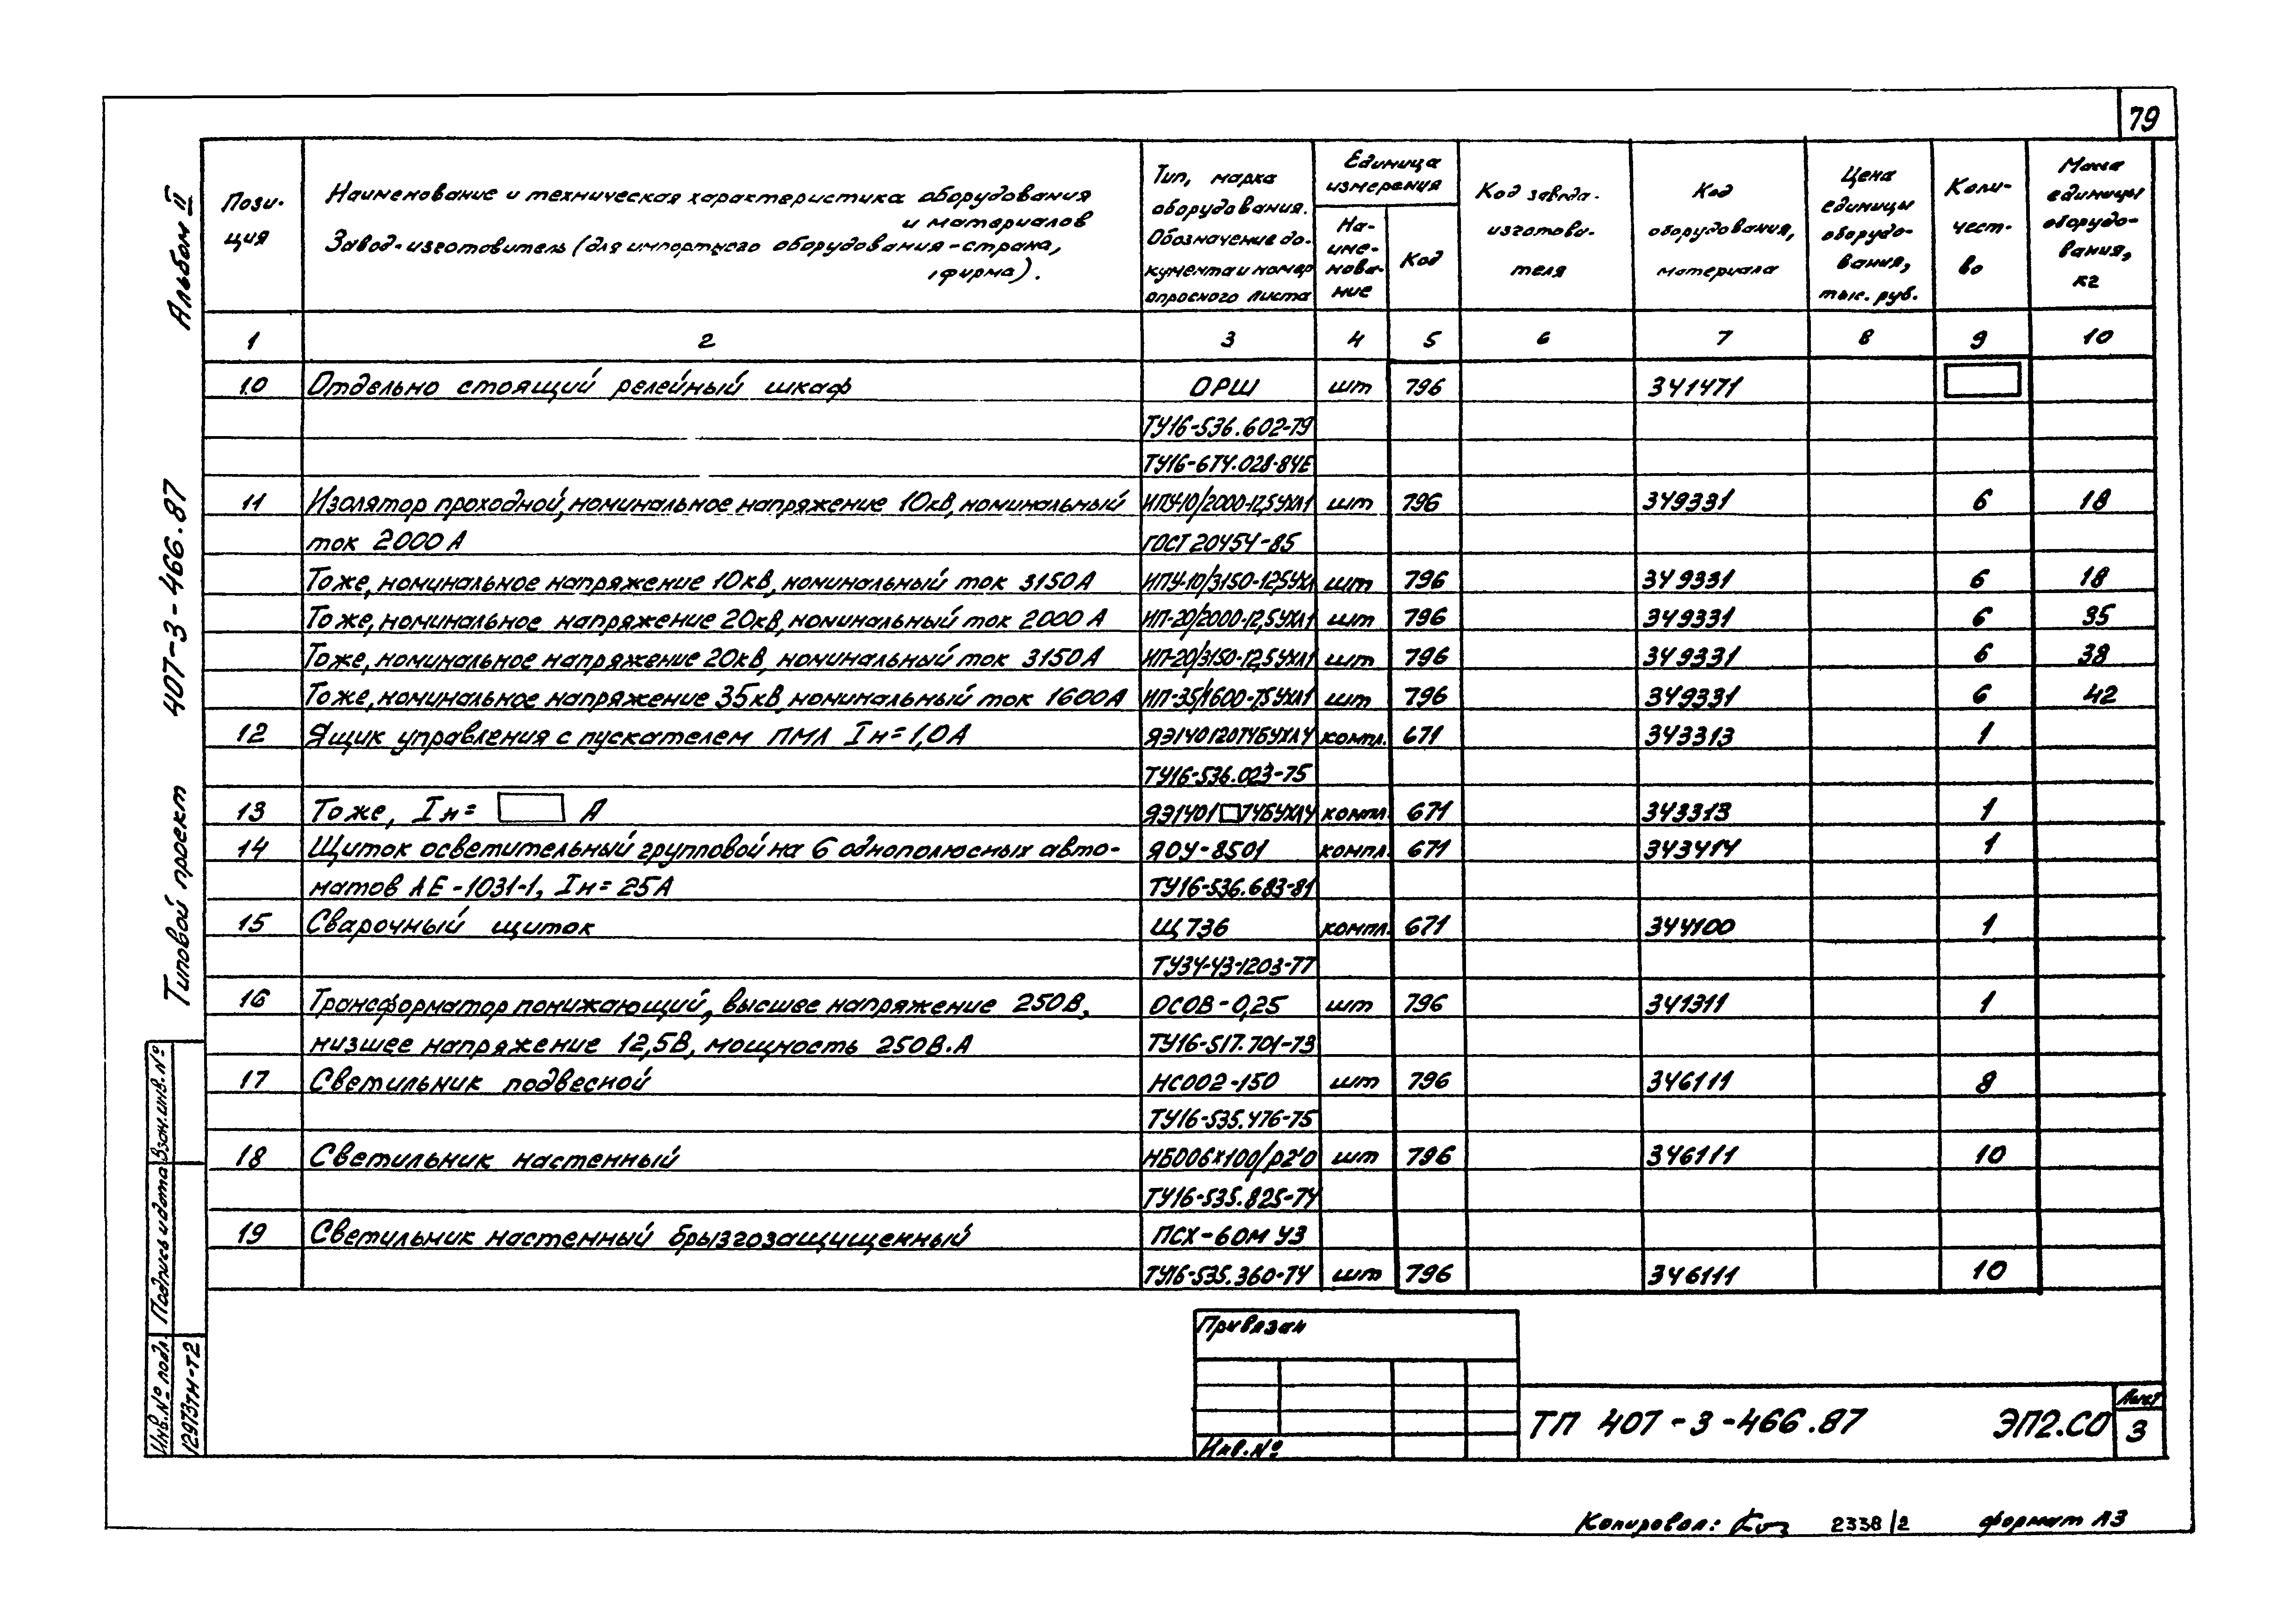 79
Альбом II
407-3-466.87
Типовой проект
Взам. инв. №
Подпись и дата
Инв. № подл.
12973тм-т2
Пози-
ция
Наименование и техническая характеристика оборудования
и материалов
Завод-изготовитель (для импортного оборудования-страна,
фирма).
Тип, марка
оборудования.
Обозначение до-
кумента и номер
опросного листа
Единица
измерения
На-
име-
нова-
ние
Код
Код завода-
изготови-
теля
Код
оборудования,
материала
Цена
единицы
оборудо-
вания,
тыс. руб.
Коли-
чест-
во
Масса
единицы
оборудо-
вания,
кг
1 2 3 4 5 6 7 8 9 10
10 Отдельно стоящий релейный шкаф ОРШ шт 796 341471
ТУ16-536.602-79
ТУ16-674.028-84Е
11 Изолятор проходной, номинальное напряжение 10кВ, номинальный ИПУ-10/2000-12,5УХЛ1 шт 796 349331 6 18
ток 2000А ГОСТ 20454-85
То же, номинальное напряжение 10кВ, номинальный ток 3150А ИПУ-10/3150-12,5УХЛ шт 796 349331 6 18
То же, номинальное напряжение 20кВ, номинальный ток 2000А ИП-20/2000-12,5УХЛ1 шт 796 349331 6 35
То же, номинальное напряжение 20кВ, номинальный ток 3150А ИП-20/3150-12,5УХЛ1 шт 796 349331 6 38
То же, номинальное напряжение 35кВ, номинальный ток 1600А ИП-35/1600-7,5УХЛ1 шт 796 349331 6 42
12 Ящик управления с пускателем ПМЛ Iн=1,0А ЯЭ14012074БУХЛ4 компл. 671 343313 1
ТУ16-536.023-75
13 То же, Iн= А ЯЭ1401 74БУХЛ4 компл. 671 343313 1
14 Щиток осветительный групповой на 6 однополюсных авто- ЯОУ-8501 компл. 671 343414 1
матов АЕ-1031-1, Iн=25А ТУ16-536.683-81
15 Сварочный щиток Щ736 компл. 671 344100 1
ТУ34-43-1203-77
16 Трансформатор понижающий, высшее напряжение 250В, ОСОВ-0,25 шт 796 341311 1
низшее напряжение 12,5В, мощность 250В.А ТУ16-517.701-73
17 Светильник подвесной НСО02-150 шт 796 346111 8
ТУ16-535.476-75
18 Светильник настенный НБО06х100/Р2'0 шт 796 346111 10
ТУ16-535.825-74
19 Светильник настенный брызгозащищенный ПСХ-60М У3
ТУ16-535.360-74 шт 796 346111 10
Привязан
Инв. №
ТП 407-3-466.87 ЭП2.СО
Лист
3
Копировал: 2338/2 формат А3